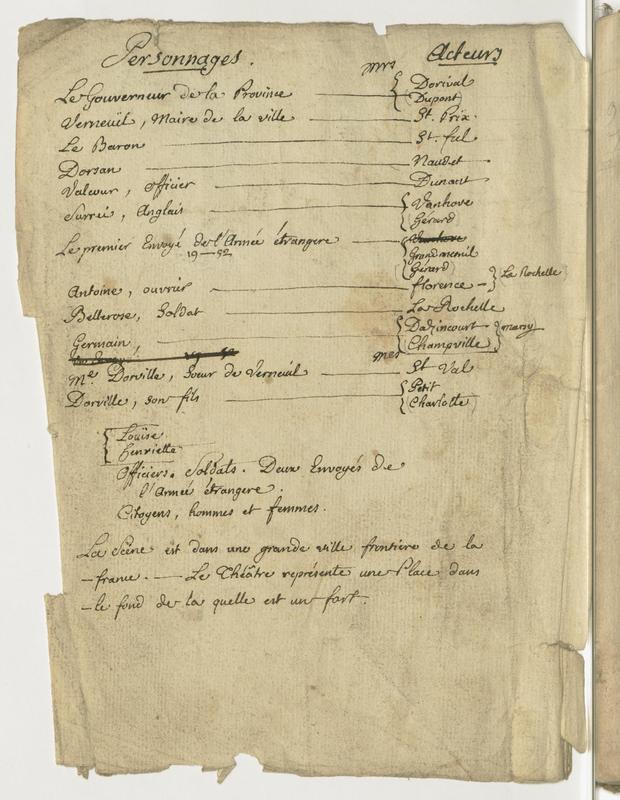 Personnages. Acteurs
Mrs
Le Gouverneur de la Province Dorival
Dupont
Verneüil, Maire de la ville St. Prix.
Le Baron St. fal
Dorsan Naudet
Valcour, officier Dunant
Surrei, Anglais Vanhove
Gérard
Le premier Envoyé de l'Armée étrangere Vanhove
Grandmenil
Gérard
Antoine, ouvrier florence La Rochelle
Bellerose, Soldat La Rochelle
Germain, Dazincourt marsy
Champville
mes
Me. Dorville, Soeur de Verneüil St Val
Dorville, son fils Petit
Charlotte
Louise
henriette
Officiers. Soldats. Deux Envoyés de
l'Armée étrangere.
Citoyens, hommes et femmes.
La Scêne est dans une grande ville frontiere de la
france. — Le Théâtre représente une Place dans
le fond de la quelle est un fort.